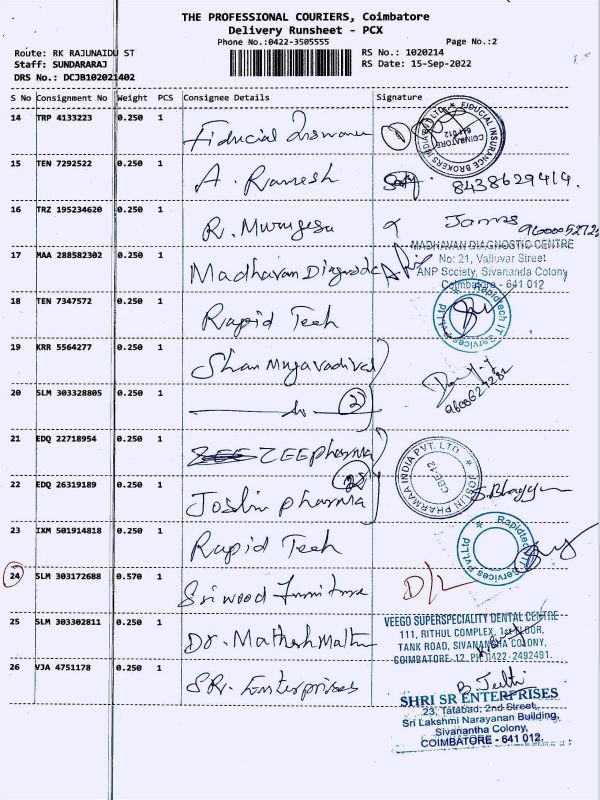 THE PROFESSIONAL COURIERS, Coimbatore
Delivery Runsheet - PCX
Phone No.:0422-3505555 Page No.:2
Route: RK RAJUNAIDU ST RS No.: 1020214
Staff: SUNDARARAJ RS Date: 15-Sep-2022
DRS No.: DCJB102021402
S No Consignment No Weight PCS Consignee Details Signature
14 TRP 4133223 0.250 1 Fiducial
FIDUCIAL INSURANCE BROKERS INDIA PVT LTD. COIMBATORE 641 012
15 TEN 7292522 0.250 1 A. Ramesh 8438629414.
16 TRZ 195234620 0.250 1 R. Murugesa
17 MAA 288582302 0.250 1 Madhavan
MADHAVAN DIAGNOSTIC CENTRE
No: 21, Valluvar Street
ANP Society, Sivananda Colony
Coimbatore - 641 012
18 TEN 7347572 0.250 1 Rapid Tech
Rapidtech IT Services Pvt.Ltd
19 KRR 5564277 0.250 1
20 SLM 303328805 0.250 1 2
21 EDQ 22718954 0.250 1 ZEE pharma
22 EDQ 26319189 0.250 1 Joslin pharma
JOSLIN PHARMAA INDIA PVT. LTD. CBE-12
23 IXM 501914818 0.250 1 Rapid Tech
Rapidtech IT Services Pvt.Ltd
24 SLM 303172688 0.570 1 Sri wood Furniture D/L
25 SLM 303302811 0.250 1 Dr.
VEEGO SUPERSPECIALITY DENTAL CENTRE
111, RITHUL COMPLEX, 1st FLOOR,
TANK ROAD, SIVANANTHA COLONY,
COIMBATORE-12. PH:0422-2492491.
26 VJA 4751178 0.250 1 SR. Enterprises
SHRI SR ENTERPRISES
23, Tatabad, 2nd Street,
Sri Lakshmi Narayanan Building,
Sivanantha Colony,
COIMBATORE - 641 012.